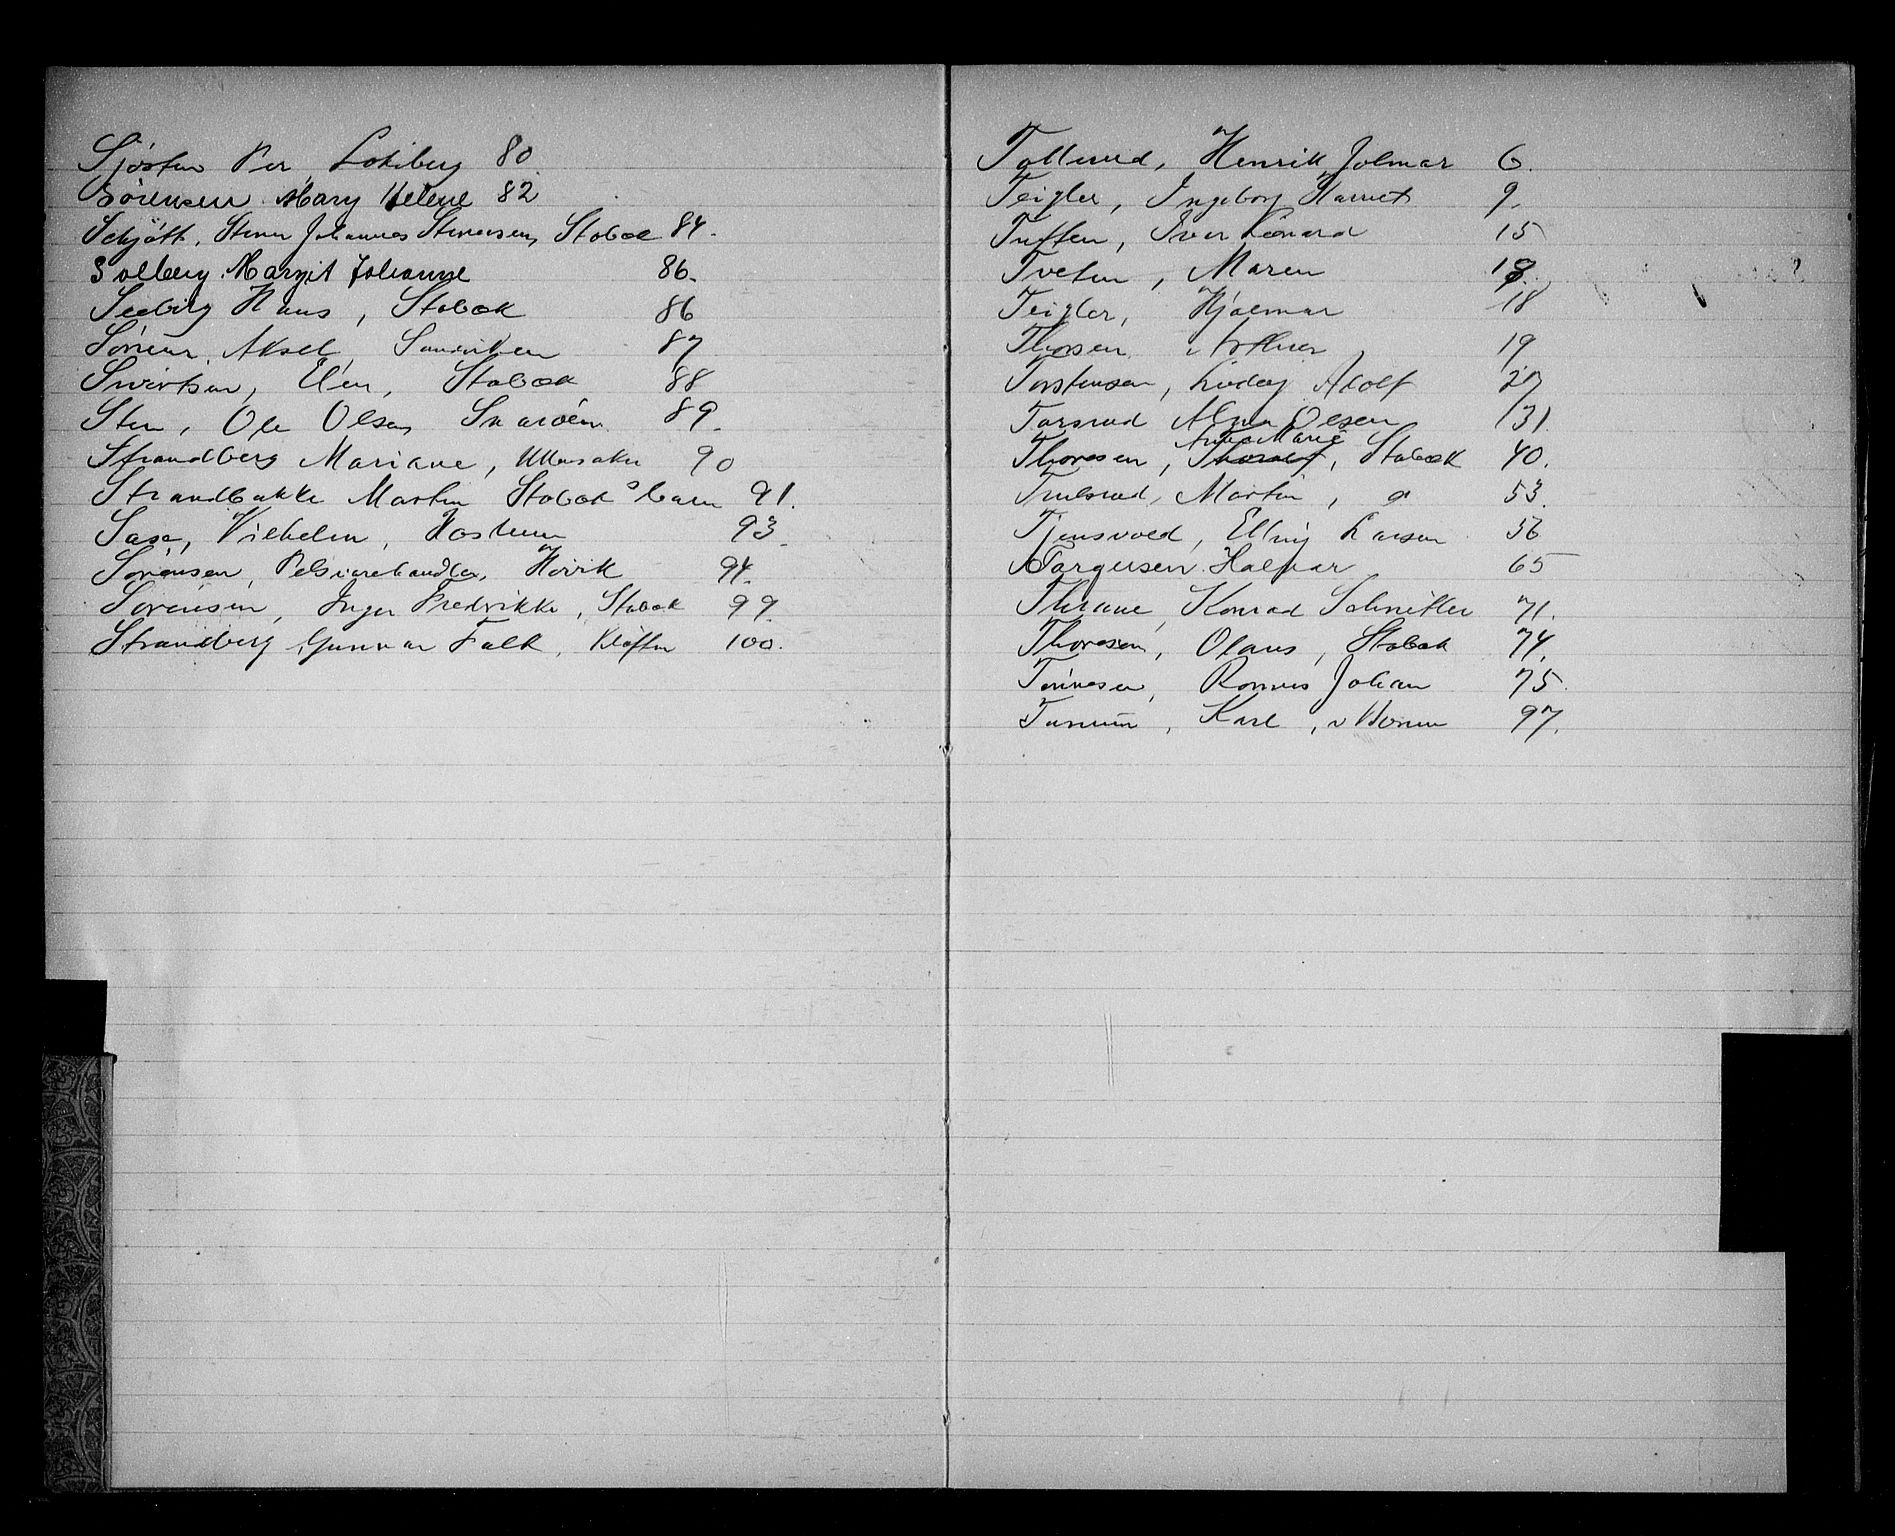 Sjösten Per, Lökiberg 80.
Sörensen Mary Helene 82
Schjött, Stener Johannes Stenersen, Stabæk 84.
Solberg Margit Johanne 86.
Seeberg Hans, Stabæk 86
Aksel, Sandviken 87
Sivertsen, Elen, Stabæk 88
Sten, Ole Olsen Snaröen 89.
Strandberg Mariane, Ullensaker 90
Strandbakke Martin Stabæk s barn 91.
Saxe, Vilhelm, Haslum 93.
Sörensen, Pelsvarehandler, Hövik 94.
Sörensen, Inger Fredrikke, Stabæk 99.
Strandberg Gunnar Falk, Klöften 100.
Tollerud, Henrik Jolmar 6.
Teigler, Ingeborg Harriet 9.
Tuften, Ivar Leonard 15
Tveten, Maren 18.
Teigler, Hjalmar 18
Thorsen Arthur 19
Torstensen, Ludvig Adolf 27
Tarsrud Alma Olsen 131
Anna Marie
Thoresen, Thoralf, Stabæk 40.
Trulsrud, Martin, 53.
Tjensvold, Elling Larsen 56
Torgersen Halvar 65
Thrane, Konrad Schnitler 71.
Thoresen, Olaus, Stabæk 74.
Tönnesen, Johan 75.
Tanum, Karl, 97.